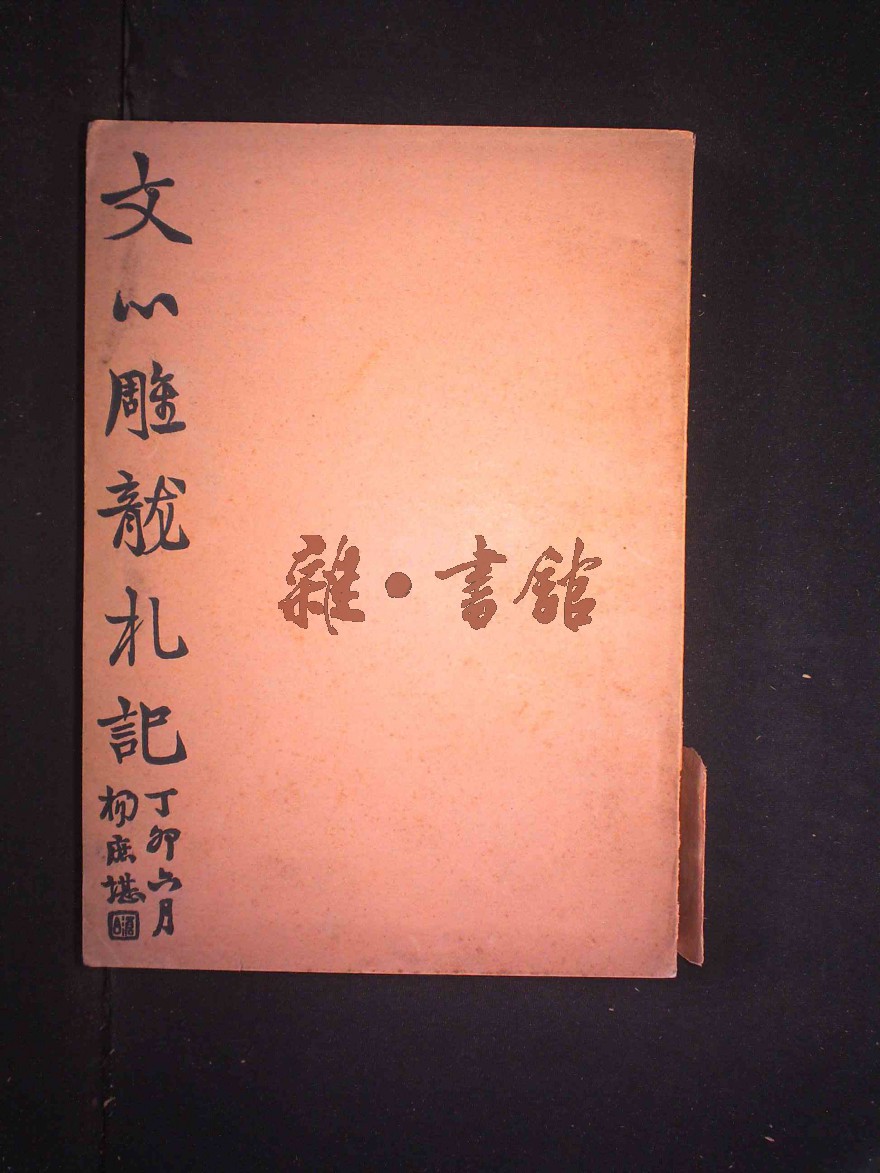 文心雕龍札記
丁卯六月
楊庶堪
雜·書館